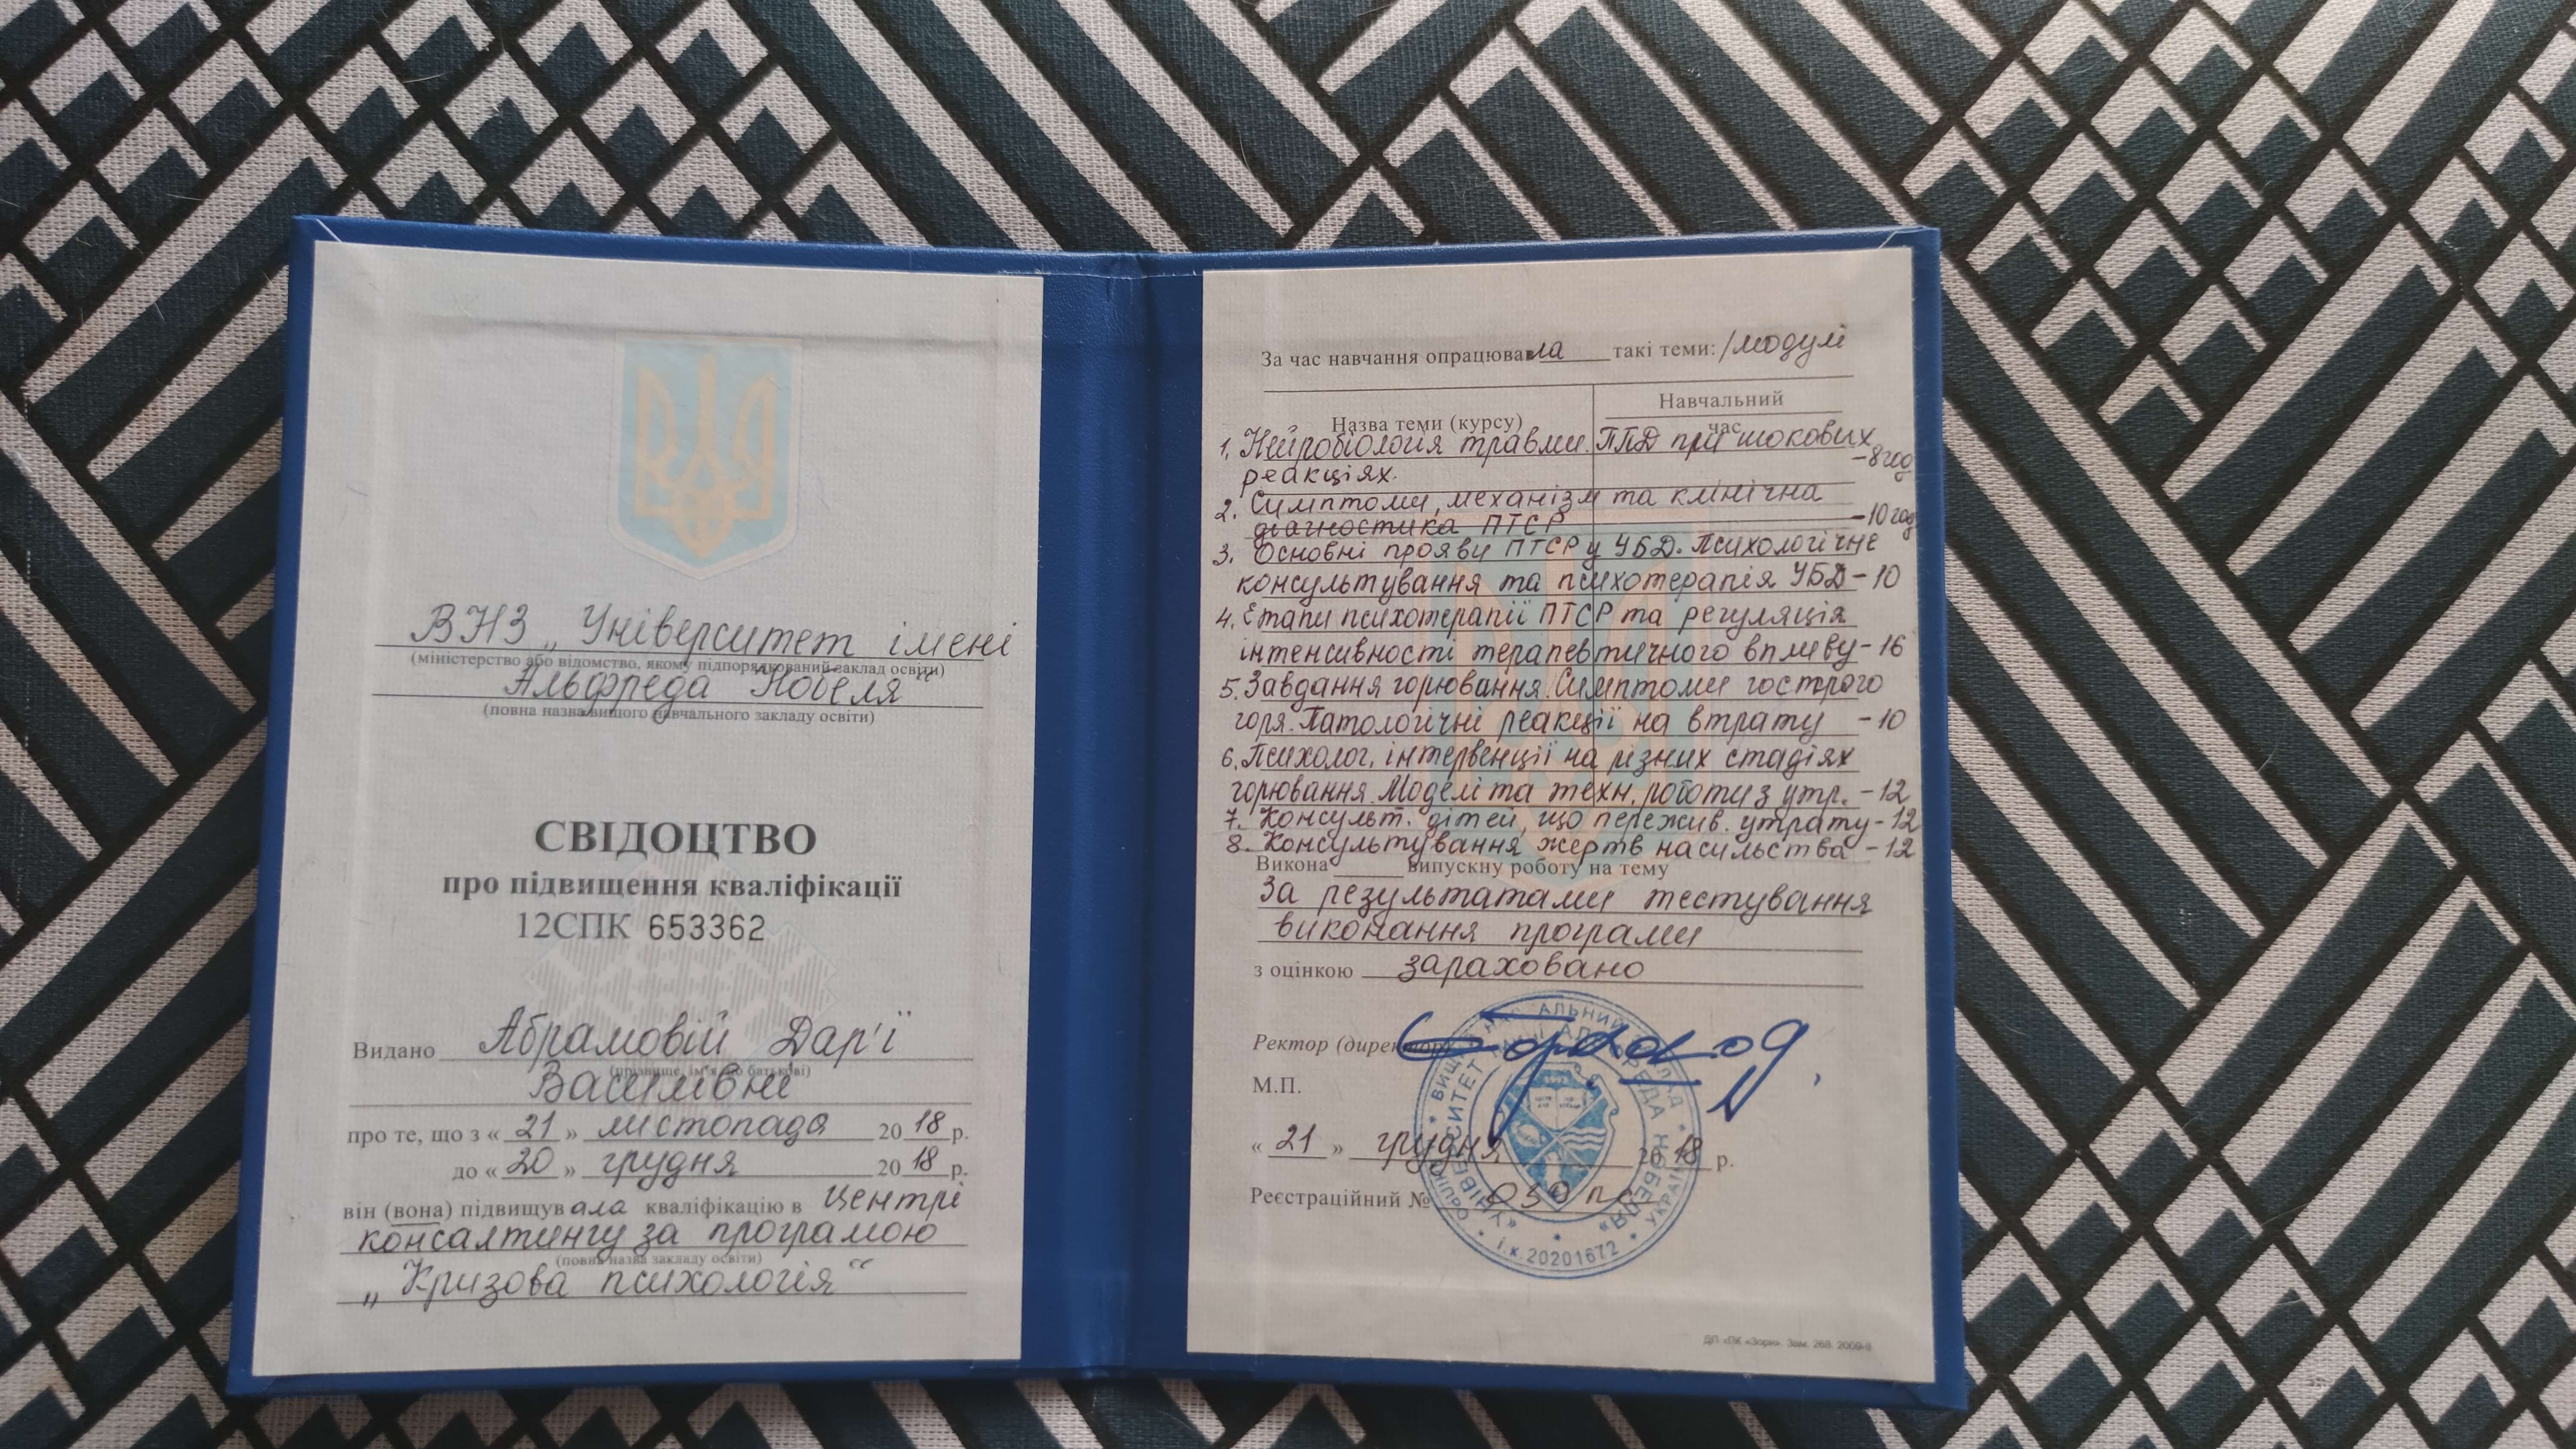 ВНЗ „Університет імені
(міністерство або відомство, якому підпорядкований заклад освіти)
Альфреда Нобеля"
(повна назва вищого навчального закладу освіти)
СВІДОЦТВО
про підвищення кваліфікації
12СПК 653362
Видано Абрамовій Дар'ї
(прізвище, ім'я, по батькові)
Василівні
про те, що з « 21 » листопада 2018 р.
до « 20 » грудня 2018 р.
він (вона) підвищувала кваліфікацію в Центрі
консалтингу за програмою
(повна назва закладу освіти)
„Кризова психологія"
За час навчання опрацювала такі теми: /модулі
Назва теми (курсу)
Навчальний
час
1. Нейробіологія травми. ППД при шокових
реакціях. -8год
2. Симптоми, механізм та клінічна
діагностика ПТСР -10год
3. Основні прояви ПТСР у УБД. Психологічне
консультування та психотерапія УБД-10
4. Етапи психотерапії ПТСР та регуляція
інтенсивності терапевтичного впливу-16
5. Завдання горювання. Симптоми гострого
горя. Патологічні реакції на втрату -10
6. Психолог. інтервенції на різних стадіях
горювання. Моделі та техн. роботи з утр. -12
7. Консульт. дітей, що пережив. утрату-12
8. Консультування жертв насильства -12
Викона випускну роботу на тему
За результатами тестування
виконання програми
з оцінкою зараховано
Ректор (директор)
М.П.
« 21 » грудня 2018 р.
Реєстраційний №
УНІВЕРСИТЕТ ІМЕНІ АЛЬФРЕДА НОБЕЛЯ
УКРАЇНА
і.к.20201672
ДП «ПК «Зоря». Зам. 268. 2009-ІІ